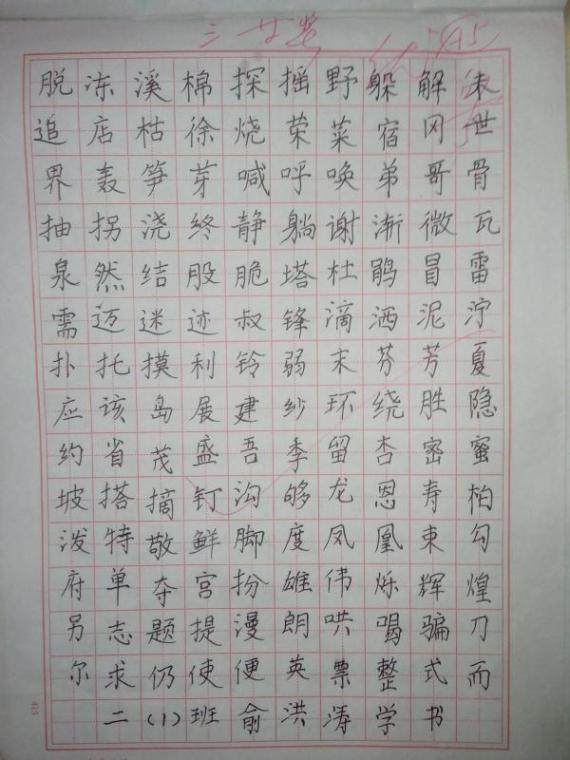 脱冻溪棉探摇野躲解未
追店枯徐烧荣菜宿冈世
界轰笋芽喊呼唤弟哥骨
抽拐浇终静躺谢渐微瓦
泉然结股脆塔杜鹃冒雷
需迈迷迹叔锋滴洒泥泞
扑托摸利铃弱末芬芳夏
应该岛展建纱环绕胜隐
约省茂盛吾季留杏密蜜
坡搭摘钉沟够龙恩寿柏
泼特敬鲜脚度凤凰束勾
府单夺宫扮雄伟烁辉煌
另志题提漫朗哄喝骗刀
尔求仍使便英票整式而
二(1)班俞洪涛学书